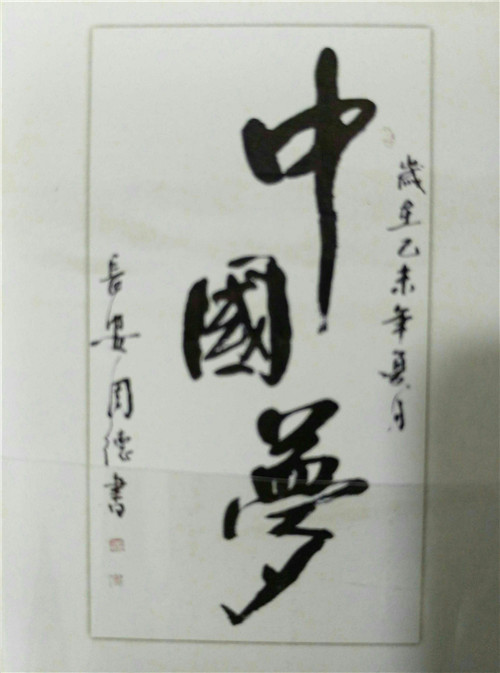 歲在乙未年夏月
中國夢
長安周德書